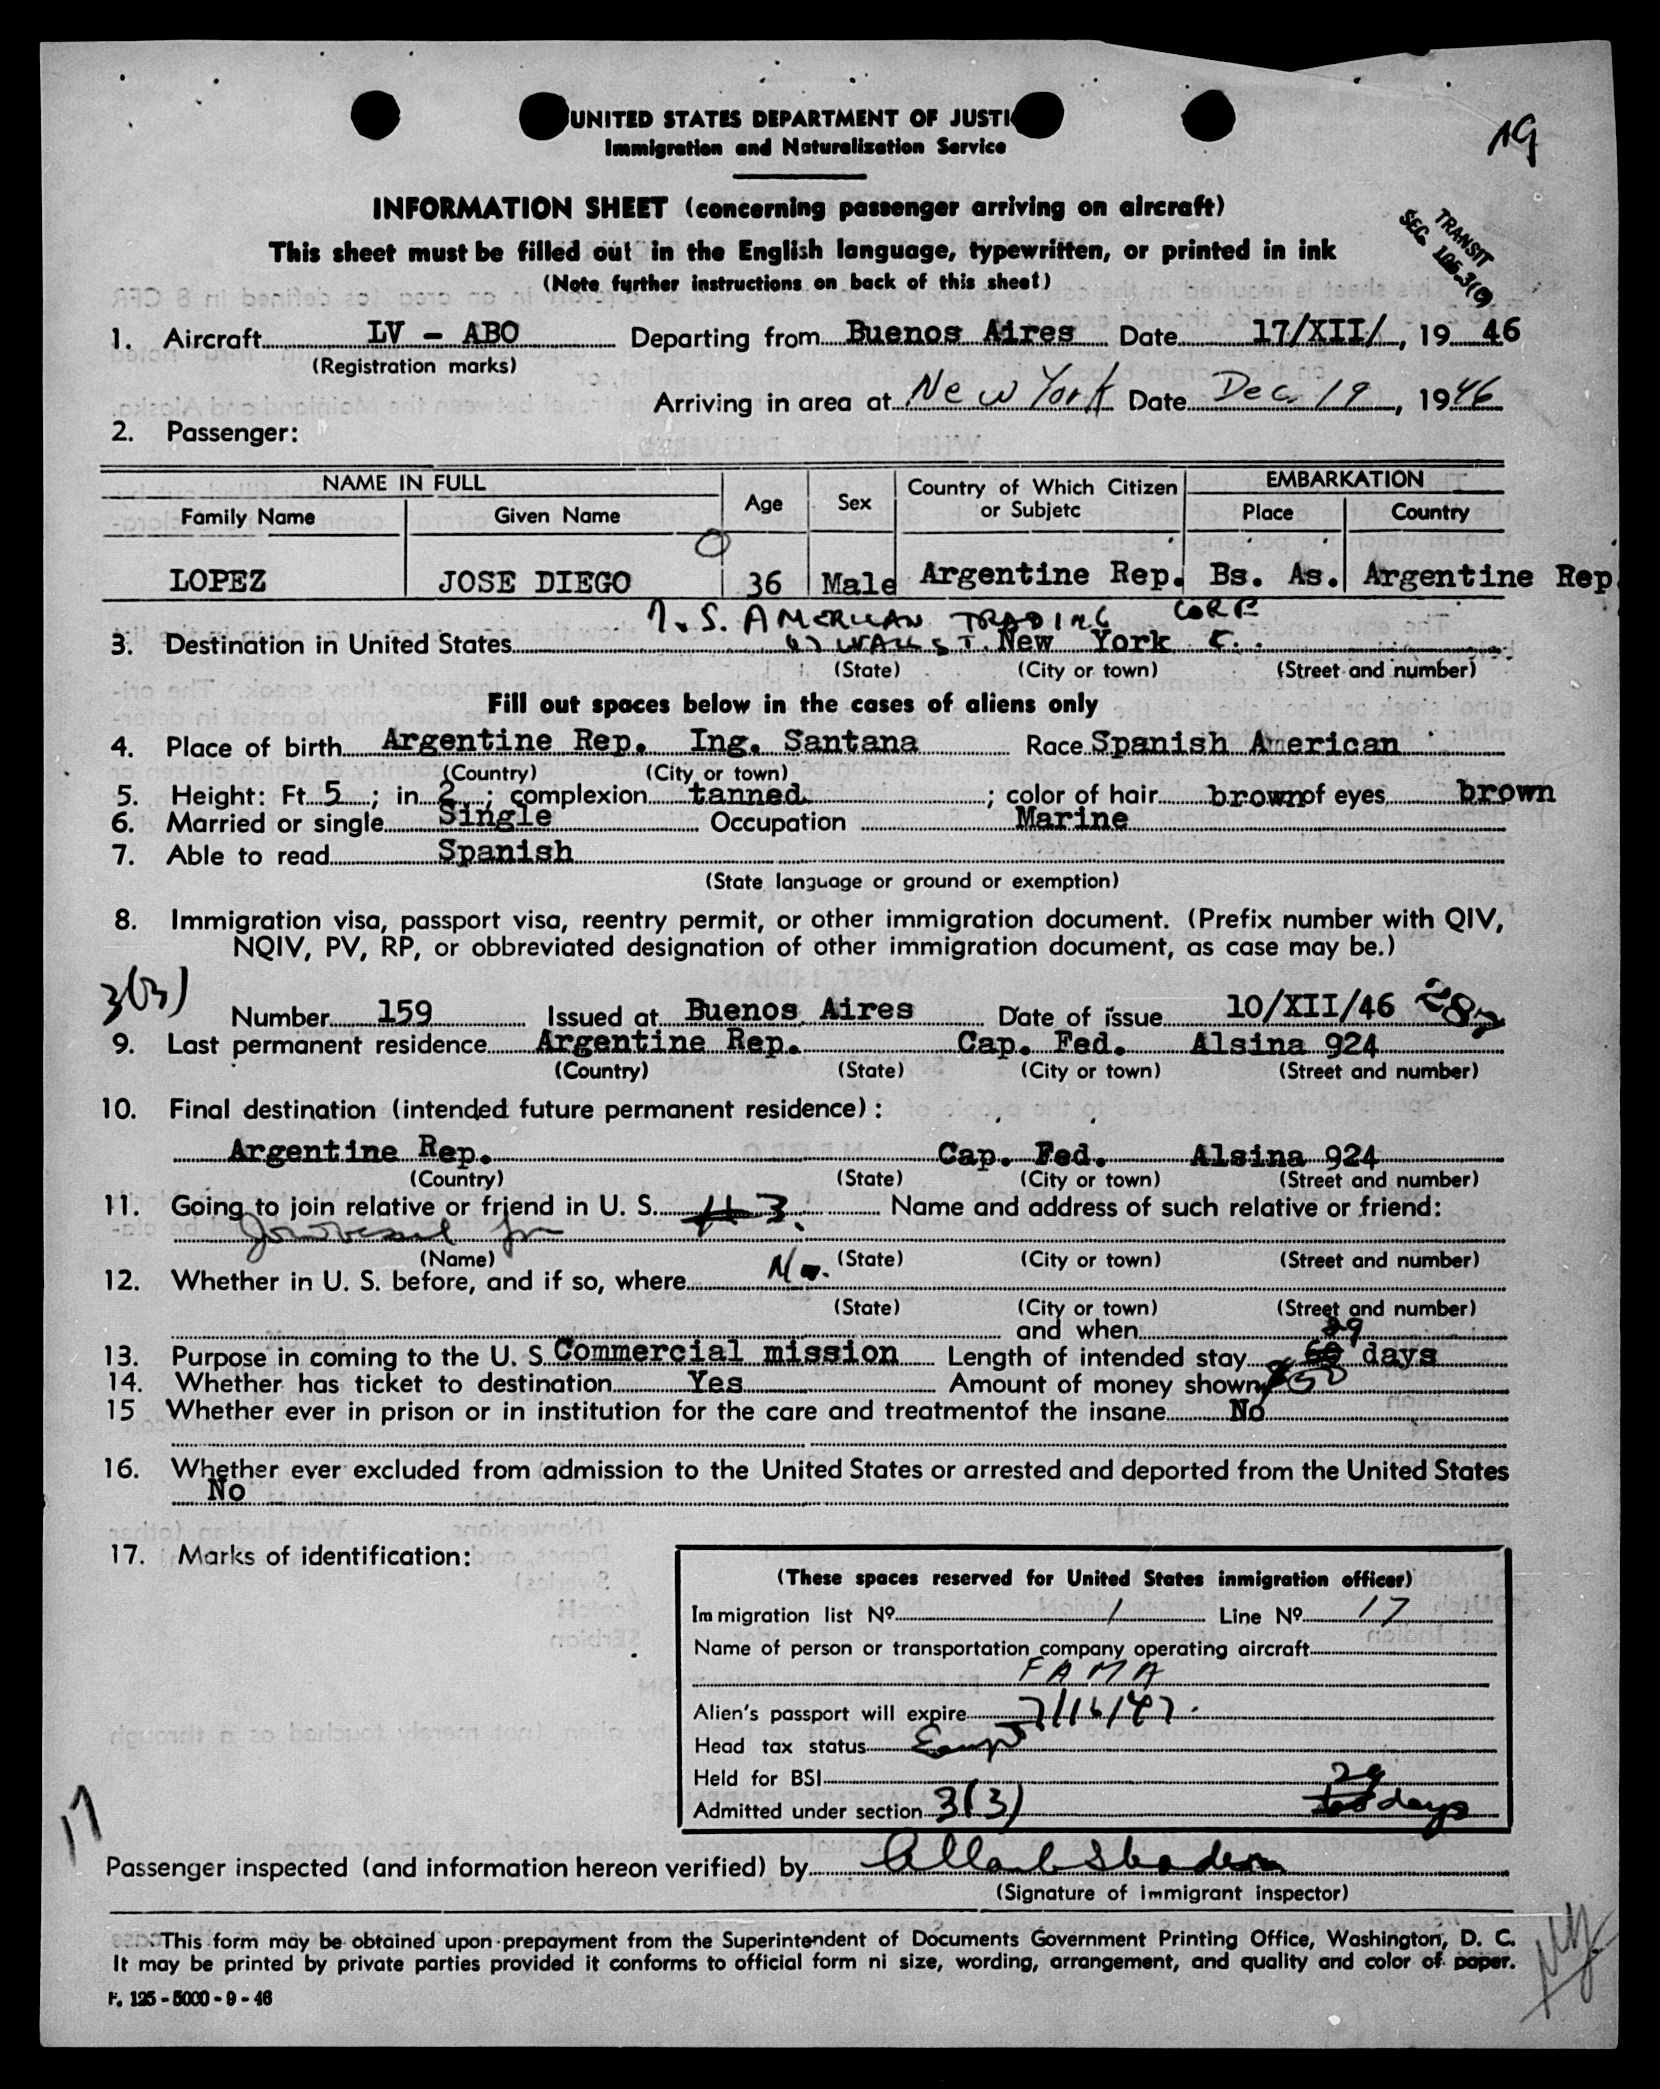 UNITED STATES DEPARTMENT OF JUSTI
Immigration and Naturalization Service
19
INFORMATION SHEET (concerning passenger arriving on aircraft)
TRANSIT
SEC.
This sheet must be filled out in the English language, typewritten, or printed in ink
(Note further instructions on back of this sheet)
1. Aircraft LV - ABO Departing from Buenos Aires Date 17/XII/, 19 46
(Registration marks)
Arriving in area at New York Date Dec. 19, 1946
2. Passenger:
NAME IN FULL Age Sex Country of Which Citizen or Subjetc EMBARKATION
Family Name Given Name Place Country
LOPEZ JOSE DIEGO 36 Male Argentine Rep. Bs. As. Argentine Rep
S. AMERICAN TRADING CORP
3. Destination in United States WALL ST. New York C.
(State) (City or town) (Street and number)
Fill out spaces below in the cases of aliens only
4. Place of birth Argentine Rep. Ing. Santana Race Spanish American
(Country) (City or town)
5. Height: Ft. 5; in 2; complexion tanned; color of hair brown of eyes brown
6. Married or single Single Occupation Marine
7. Able to read Spanish
(State language or ground or exemption)
8. Immigration visa, passport visa, reentry permit, or other immigration document. (Prefix number with QIV,
NQIV, PV, RP, or obbreviated designation of other immigration document, as case may be.)
3(3)
Number 159 Issued at Buenos Aires Date of issue 10/XII/46
9. Last permanent residence Argentine Rep. Cap. Fed. Alsina 924
(Country) (State) (City or town) (Street and number)
10. Final destination (intended future permanent residence):
Argentine Rep. Cap. Fed. Alsina 924
(Country) (State) (City or town) (Street and number)
11. Going to join relative or friend in U. S. Name and address of such relative or friend:
(Name) (State) (City or town) (Street and number)
12. Whether in U. S. before, and if so, where No.
(State) (City or town) (Street and number)
and when
13. Purpose in coming to the U. S Commercial mission Length of intended stay 29 60 days
14. Whether has ticket to destination Yes Amount of money shown
15 Whether ever in prison or in institution for the care and treatmentof the insane No
16. Whether ever excluded from admission to the United States or arrested and deported from the United States
No
17. Marks of identification:
(These spaces reserved for United States inmigration officer)
Immigration list Nº 1 Line Nº 17
Name of person or transportation company operating aircraft
FAMA
Alien's passport will expire 7/16/47.
Head tax status
Held for BSI
Admitted under section 3(3) 29 days
17
Passenger inspected (and information hereon verified) by
(Signature of immigrant inspector)
This form may be obtained upon prepayment from the Superintendent of Documents Government Printing Office, Washington, D. C.
It may be printed by private parties provided it conforms to official form ni size, wording, arrangement, and quality and color of paper.
F. 125 - 5000 - 9 - 46